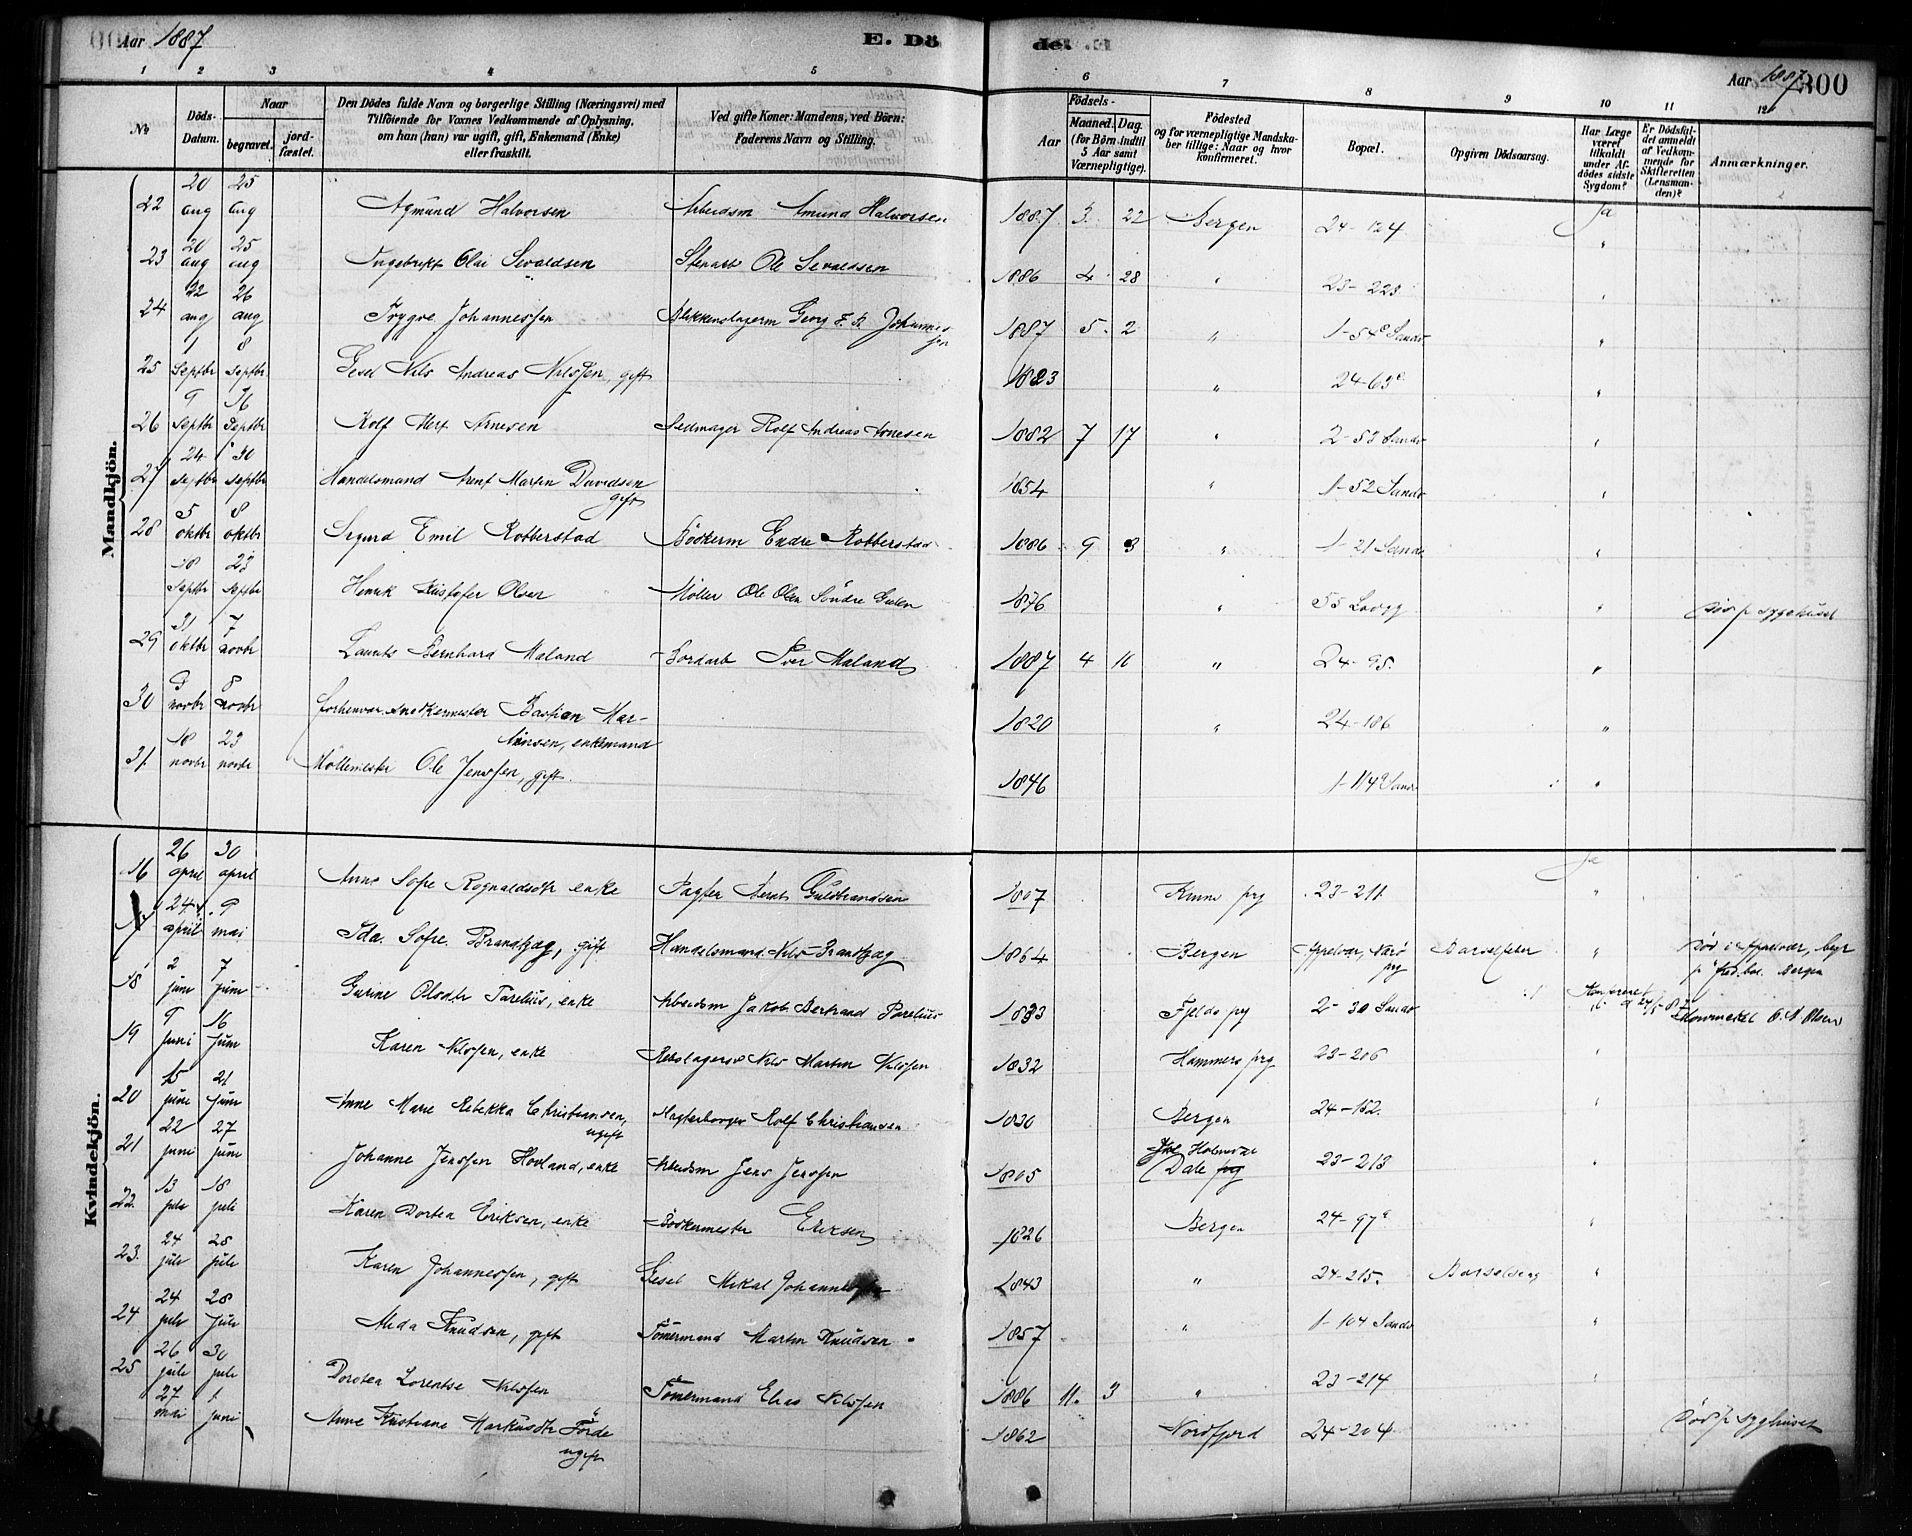 Aar 1887
E. Dö
de. .E
Aar 1887 300
1 2 3 4 5 6 7 8 9 10 11 12
No
Döds-Datum.
Naar
begravet.
jordfæstet.
Den Dödes fulde Navn og borgerlige Stilling (Næringsvei) med
Tilföiende for Voxnes Vedkommende af Oplysning,
om han (hun) var ugift, gift, Enkemand (Enke)
eller fraskilt.
Ved gifte Koner: Mandens, ved Börn:
Faderens Navn og Stilling.
Födsels-
Aar
Maaned. Dag.
(for Børn indtil
5 Aar samt
Værnepligtige).
Födested
og for værnepligtige Mandskaber tillige: Naar og hvor
konfirmeret.
Bopæl.
Opgiven Dödsaarsag.
Har Læge
været
tilkaldt
under Afdödes sidste
Sygdom?
Er Dödsfaldet anmeldt
af Vedkommende for
Skifteretten
(Lensmanden)?
Anmærkninger.
Mandkjön.
22 20 aug 25 aug Agmund Halvorsen Arbeidsm Amund Halvorsen 1887 3. 22 Bergen 24-124 Ja
23 20 aug 25 aug Ingebrikt Olai Sevaldsen Stenarb Ole Sevaldsen 1886 4 28 " 23-223 "
24 22 aug 26 aug Trygve Johannessen Blikkenslagerm Georg F. B. Johannessen 1887 5. 2 " 1-54 Sandv "
25 1 Septbr 8 Septbr Gesel Nils Andreas Nilssen, gift 1823 " 24-63 "
26 9 Septbr 16 Septbr Rolf Mert Arnesen Sedmager Rolf Andreas Arnesen 1882 7 17 " 2-53 Sandv "
27 24 Septbr 30 Septbr Handelsmand Arent Martin Davidsen gift 1854 " 1-52 Sandv "
28 5 oktbr 8 oktbr Sigurd Emil Robberstad Bödkerm Endre Robberstad 1886 9 3 " 1-21 Sandv "
18 Septbr 23 Septbr Henrik Kristofer Olsen Möller Ole Olsen Söndre Gulen 1876 " 55 Ladegg " död p sygehuset
29 31 oktbr 7 novbr Laurits Bernhard Maland Bordarb Iver Maland 1887 4 16 " 24-95. "
30 3 novbr 8 novbr forhenvar. snedkermester Bastian Martinsen, enkemand 1820 " 24-186 "
31. 18 novbr 23 novbr Möllemester Ole Jenssen, gift. 1846 1-114 Sandv "
Kvindekjön.
16 26 april 30 april Anne Sofie Rognaldsdtr enke Pagter Bernt Guldbrandsen 1807 Kinn prg 23-211 Ja
17 24 april 9 mai Ida Sofie Brandtzæg, gift Handelsmand Nils Brandtzæg 1864 Bergen Appelvær, Nærö prg Barselfeber " död i Appelvær, begr p. fred. bol. Bergen
18 2 juni 7 juni Gurine Olsdtr Parelius, enke Arbeidsm Jakob Bertrand Parelius 1833 Fjelds prg 2-30 Sandv
19 9 juni 16 juni Karen Nilssen, enke Rebslagersv Nils Martin Nilssen 1832 Hammers prg 23-206 "
20 15 juni 21 juni Anne Marie Rebekka Christiansen, ugift Magterborger Rolf Christiansen 1830 Bergen 24-152. "
21 22 juni 27 juni Johanne Jenssen Hovland, enke Arbeidsm Jens Jenssen 1805 Dale prg 23-213 "
22. 13 juli 18 juli Karen Dortea Eriksen, enke Bödkermester Eriksen 1826 Bergen 24-97 "
23. 24 juli 28 juli Karen Johannessen, gift Gesel Mikal Johannessen 1843 " 24-215. Barselseng "
24 24 juli 28 Juli Meda Knudsen, gift Tömermand Martin Knudsen 1857 " 1-104 Sandv "
25 26 juli 30 juli Dorotea Lorentse Nilssen Tömermand Elias Nilssen 1886 11. 3 " 23-214 "
27 mai 1 juni Anne Kristiane Markusdtr Förde ugift 1862 Nordfjord 24-204 död p. sygehuset